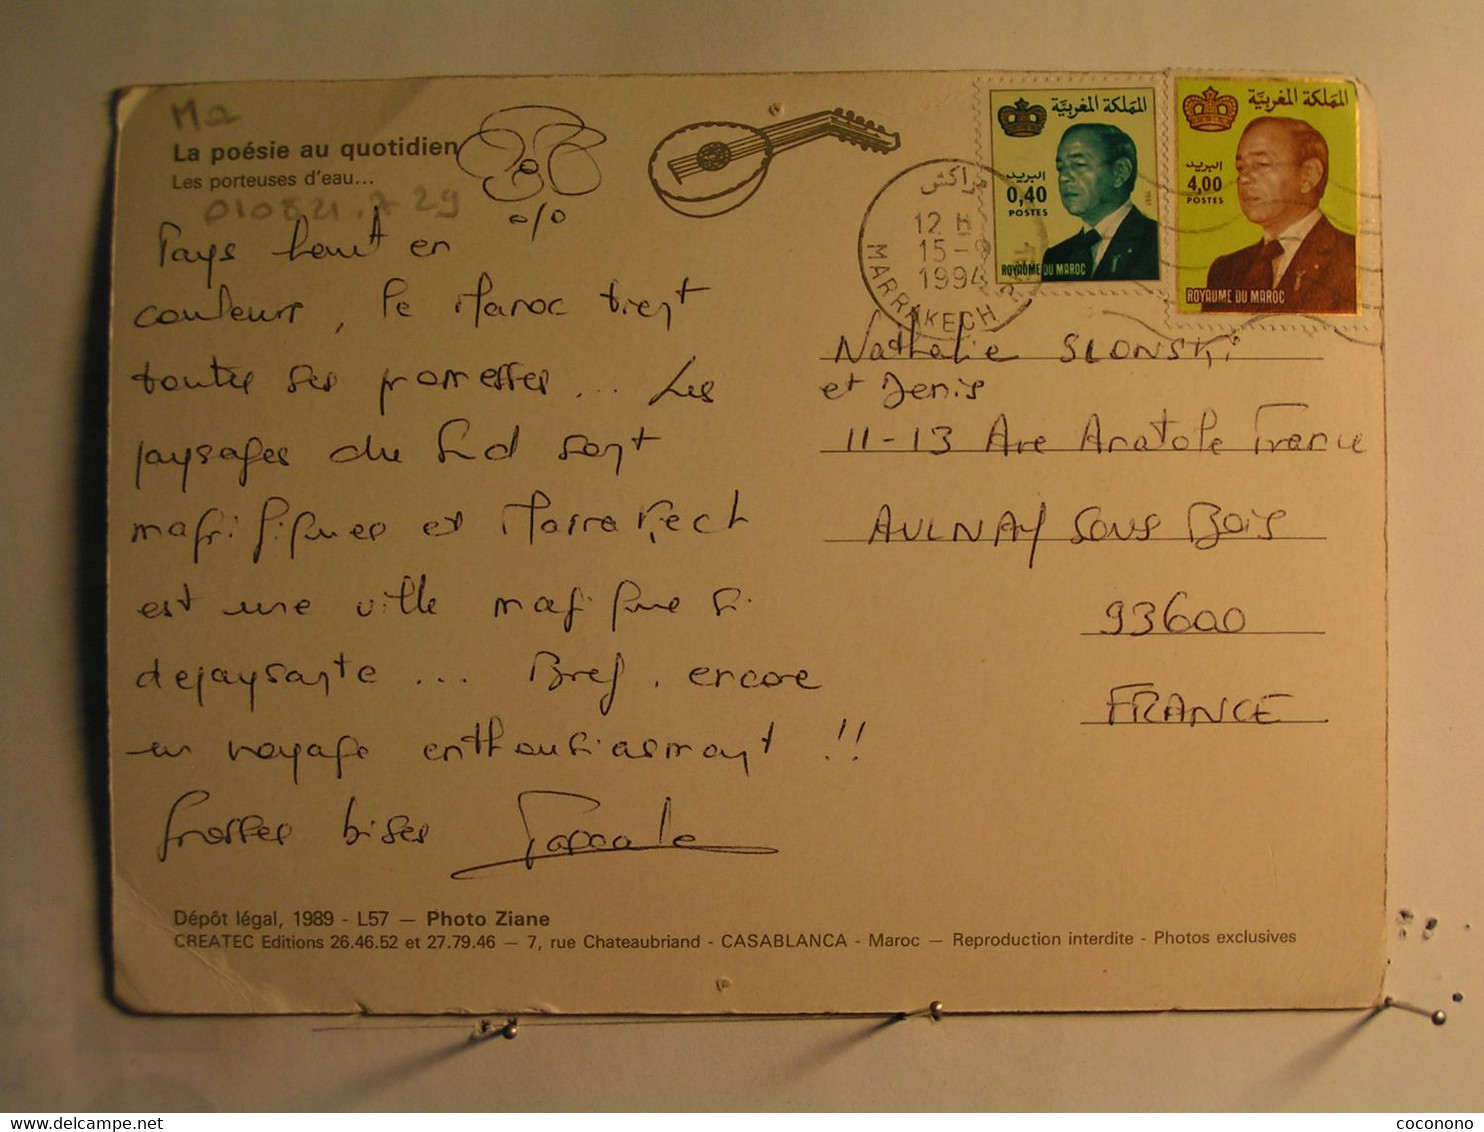 Ma
La poésie au quotidien
Les porteuses d'eau...
010821.729
Pays haut en
couleurs, le Maroc tient
toutes ses promesses... Les
paysages du Sud sont
magnifiques et Marrakech
est une ville magique si
depaysante... Bref, encore
un voyage enthousiasmant !!
Grosses bises Pascale
مراكش
12 H
15-9
1994
MARRAKECH
المملكة المغربية
البريد
0,40
POSTES
1981
ROYAUME DU MAROC
المملكة المغربية
البريد
4,00
POSTES
ROYAUME DU MAROC
Nathalie SLONSKI
et Denis
11-13 Ave Anatole France
AULNAY SOUS BOIS
93600
FRANCE
Dépôt légal, 1989 - L57 — Photo Ziane
CREATEC Editions 26.46.52 et 27.79.46 — 7, rue Chateaubriand - CASABLANCA - Maroc — Reproduction interdite - Photos exclusives
coconono